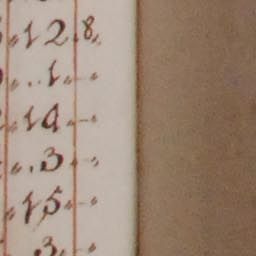 12.8.
..1.-.
.14.-.
..3.-.
.15.-.
.3.-.